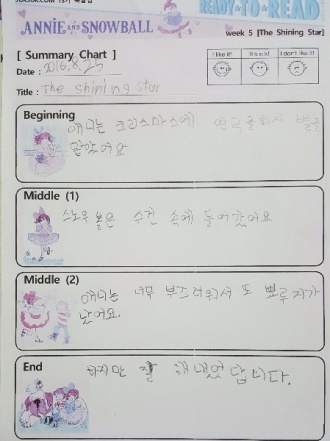 READY-TO-READ
ANNIE AND SNOWBALL
week 5 [The Shining Star]
[ Summary Chart ]
I like it! It's o.k! I don't like it!
Date : 2016.8.25
Title : The shining star
Beginning
애니는 크리스마스에 연극을해서 별을
맡았어요
Middle (1)
스노우 볼은 수건 속에 들어갔어요
Middle (2)
애니는 너무 부끄러워서 또 뾰루지가
났어요.
End
하지만 잘 해냈답니다.